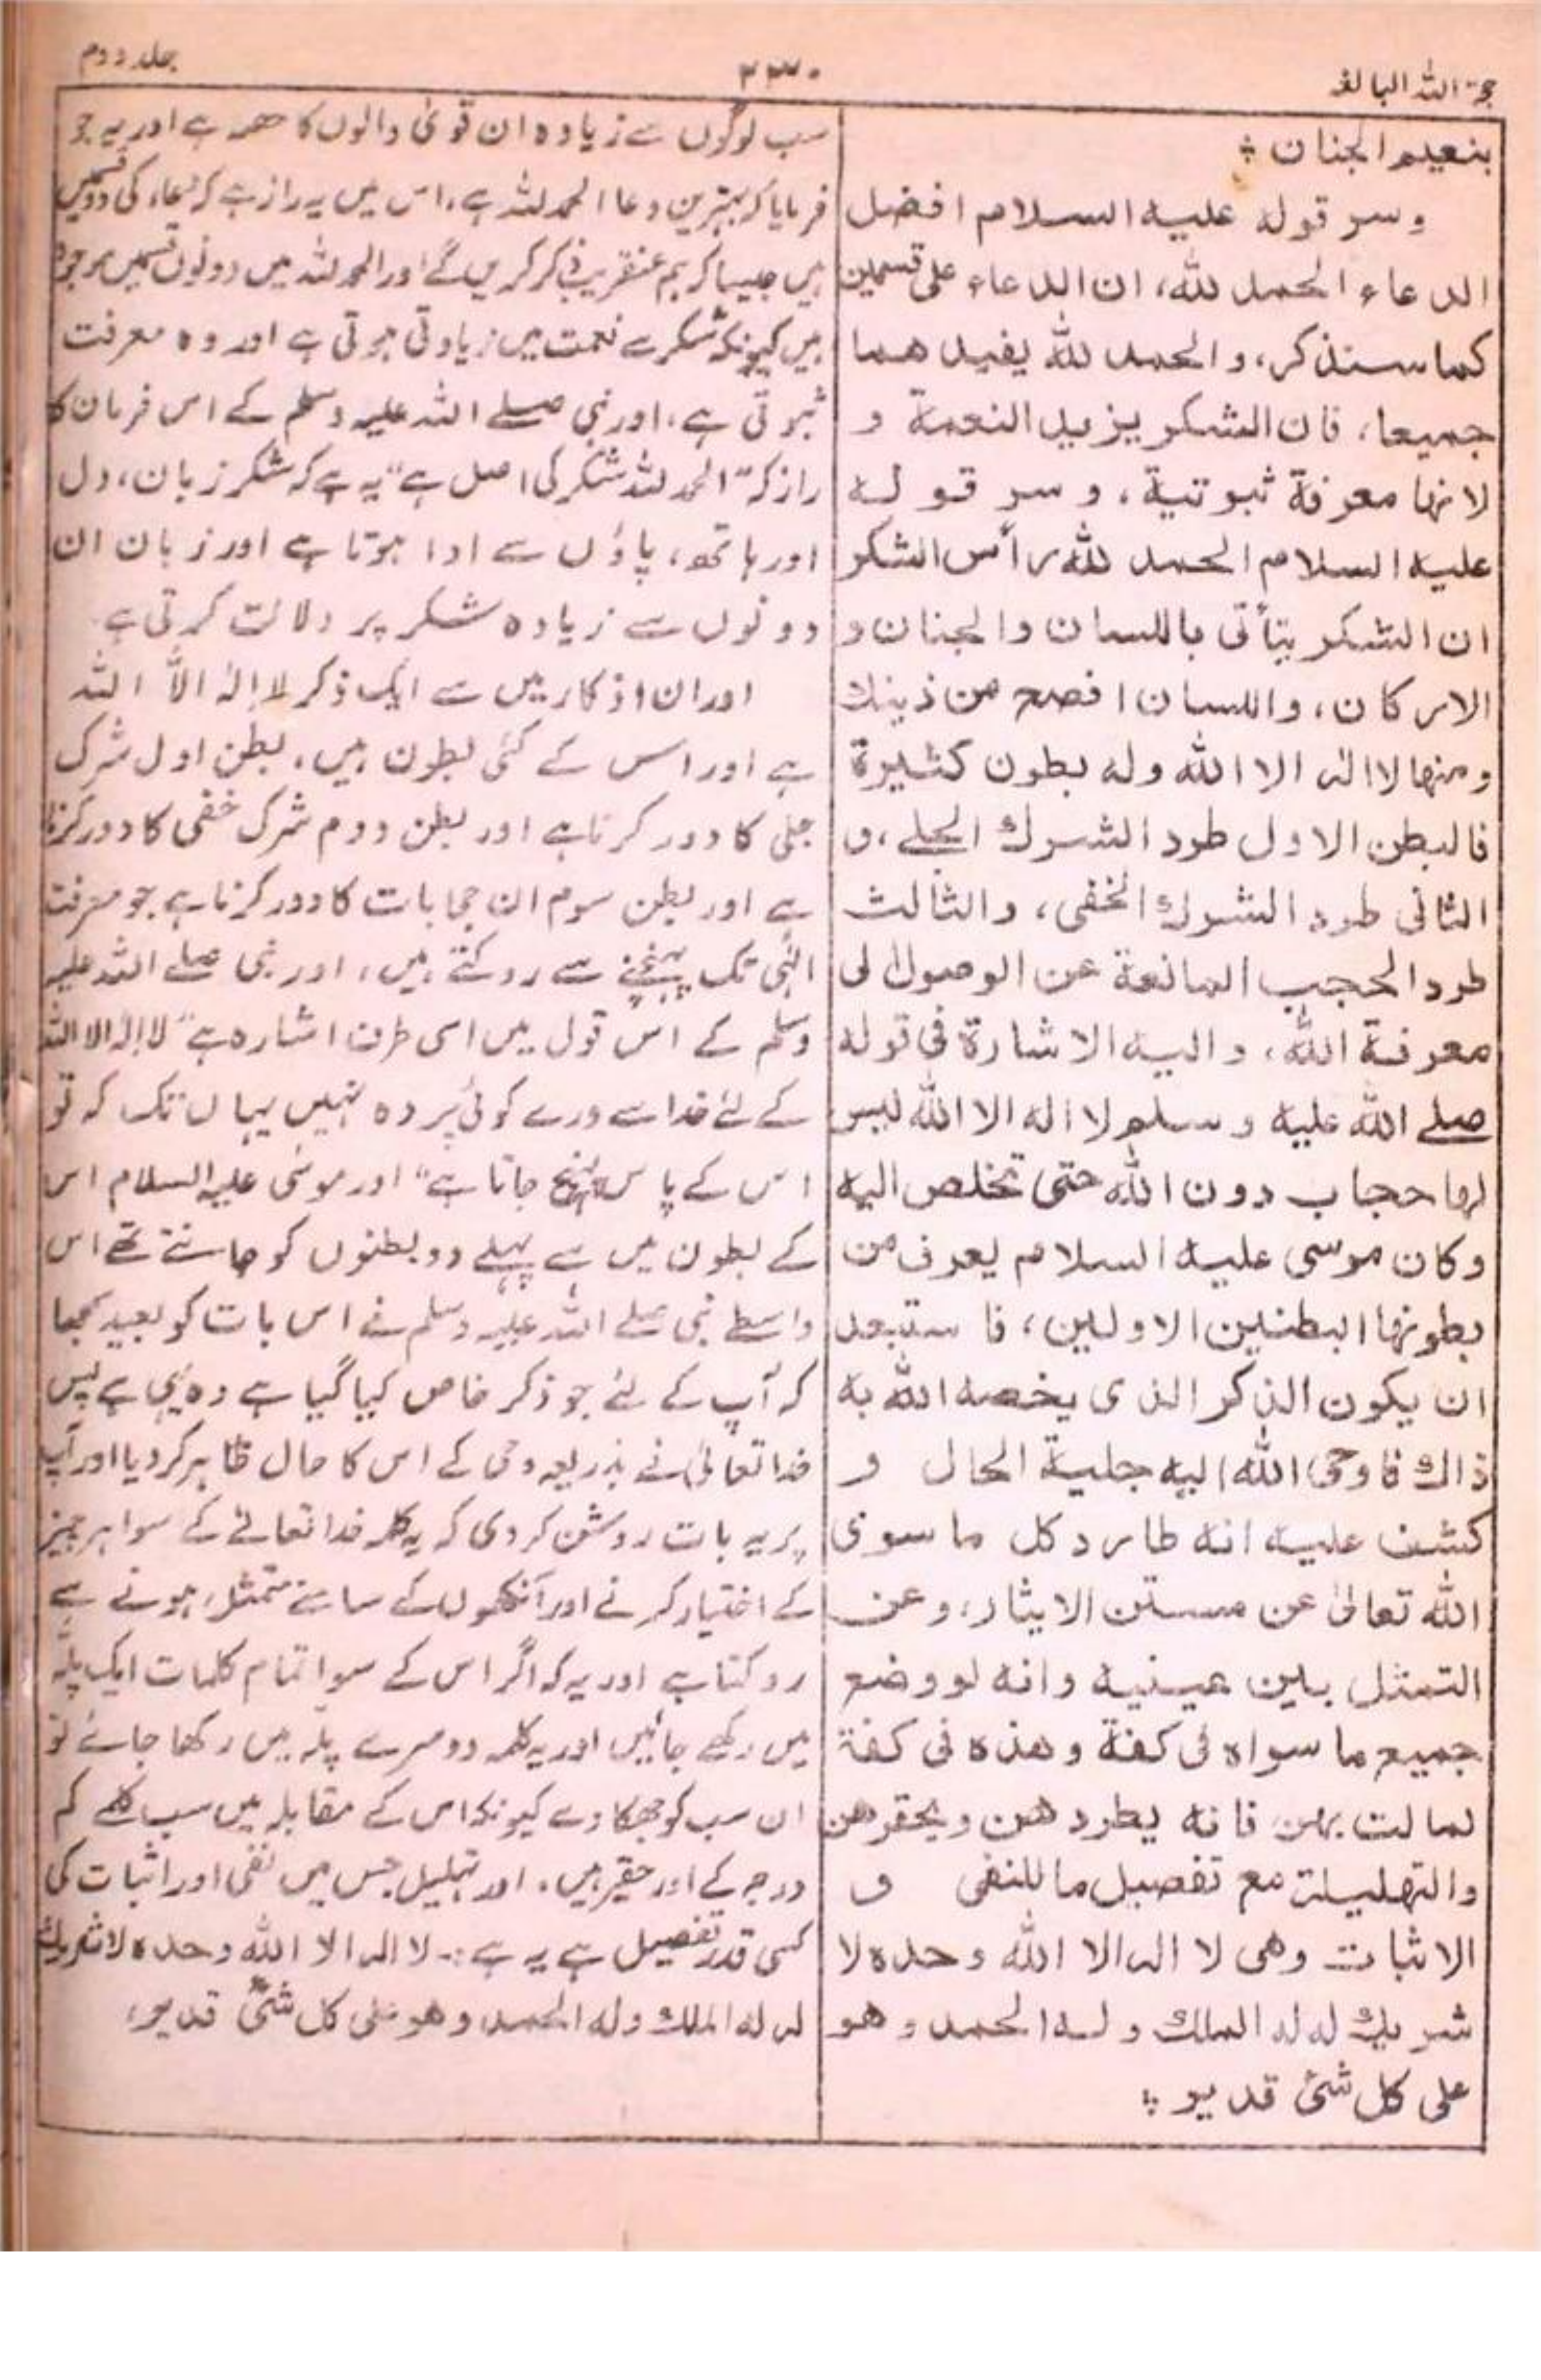 حجۃ اللہ البالغہ
۲۳۰
جلد دوم
بنعيم الجنان ؞
وسر قوله عليه السلام افضل
الدعاء الحمد لله، ان الدعاء على قسمين
كما سنذكر، والحمد لله يفيدهما
جميعا، فان الشكر يزيد النعمة و
لانها معرفة ثبوتية، وسر قوله
عليه السلام الحمد لله رأس الشكر
ان الشكر يتأتى باللسان والجنان و
الاركان، واللسان افصح من ذينك
ومنها لا اله الا الله وله بطون كثيرة
فالبطن الاول طرد الشرك الجلى، و
الثانى طرد الشرك الخفى، والثالث
طرد الحجب المانعة عن الوصول الى
معرفة الله، واليه الاشارة فى قوله
صلے الله عليه وسلم لا اله الا الله ليس
لها حجاب دون الله حتى تخلص اليه
وكان موسى عليه السلام يعرف من
بطونها البطنين الاولين، فاستبعد
ان يكون الذكر الذى يخصه الله به
ذاك فاوحى الله اليه جلية الحال و
كشف عليه انه طارد كل ما سوى
الله تعالىٰ عن مستن الايثار، وعن
التمثل بين عينيه وانه لو وضع
جميع ما سواه فى كفة وهذه فى كفة
لمالت بهن فانه يطردهن ويحقرهن
والتهليلة مع تفصيل ما للنفى و
الاثبات وهى لا اله الا الله وحده لا
شريك له له الملك وله الحمد وهو
على كل شئ قدير ؞
سب لوگوں سے زیادہ ان قویٰ والوں کا حصہ ہے اور یہ جو
فرمایا کہ بہترین دعا الحمد للہ ہے، اس میں یہ راز ہے کہ دعاء کی دو قسمیں
ہیں جیسا کہ ہم عنقریب ذکر کریں گے اور الحمد للہ میں دونوں قسمیں موجود
ہیں کیونکہ شکر سے نعمت میں زیادتی ہوتی ہے اور وہ معرفت
ثبوتی ہے، اور نبی صلے اللہ علیہ وسلم کے اس فرمان کا
راز کہ "الحمد للہ شکر کی اصل ہے" یہ ہے کہ شکر زبان، دل
اور ہاتھ، پاؤں سے ادا ہوتا ہے اور زبان ان
دونوں سے زیادہ شکر پر دلالت کرتی ہے
اور ان اذکار میں سے ایک ذکر لا الٰہ الاّ اللہ
ہے اور اس کے کئی بطون ہیں، بطن اول شرک
جلی کا دور کرنا ہے اور بطن دوم شرک خفی کا دور کرنا
ہے اور بطن سوم ان حجابات کا دور کرنا ہے جو معرفت
الٰہی تک پہنچنے سے روکتے ہیں، اور نبی صلے اللہ علیہ
وسلم کے اس قول میں اسی طرف اشارہ ہے "لا الہ الا اللہ
کے لئے خدا سے ورے کوئی پردہ نہیں یہاں تک کہ تو
اس کے پاس پہنچ جاتا ہے" اور موسٰی علیہ السلام اس
کے بطون میں سے پہلے دو بطنوں کو جانتے تھے اس
واسطے نبی صلے اللہ علیہ وسلم نے اس بات کو بعید سمجھا
کہ آپ کے لئے جو ذکر خاص کیا گیا ہے وہ یہی ہے پس
خدا تعالیٰ نے بذریعہ وحی کے اس کا حال ظاہر کر دیا اور آپ
پر یہ بات روشن کر دی کہ یہ کلمہ خدا تعالےٰ کے سوا ہر چیز
کے اختیار کرنے اور آنکھوں کے سامنے متمثل ہونے سے
روکتا ہے اور یہ کہ اگر اس کے سوا تمام کلمات ایک پلہ
میں رکھے جائیں اور یہ کلمہ دوسرے پلہ میں رکھا جائے تو
ان سب کو جھکا دے کیونکہ اس کے مقابلہ میں سب کلمے کم
درجہ کے اور حقیر ہیں، اور تہلیل جس میں نفی اور اثبات کی
کسی قدر تفصیل ہے یہ ہے:- لا اله الا الله وحده لا شريك
له له الملك وله الحمد وهو على كل شئ قدير،